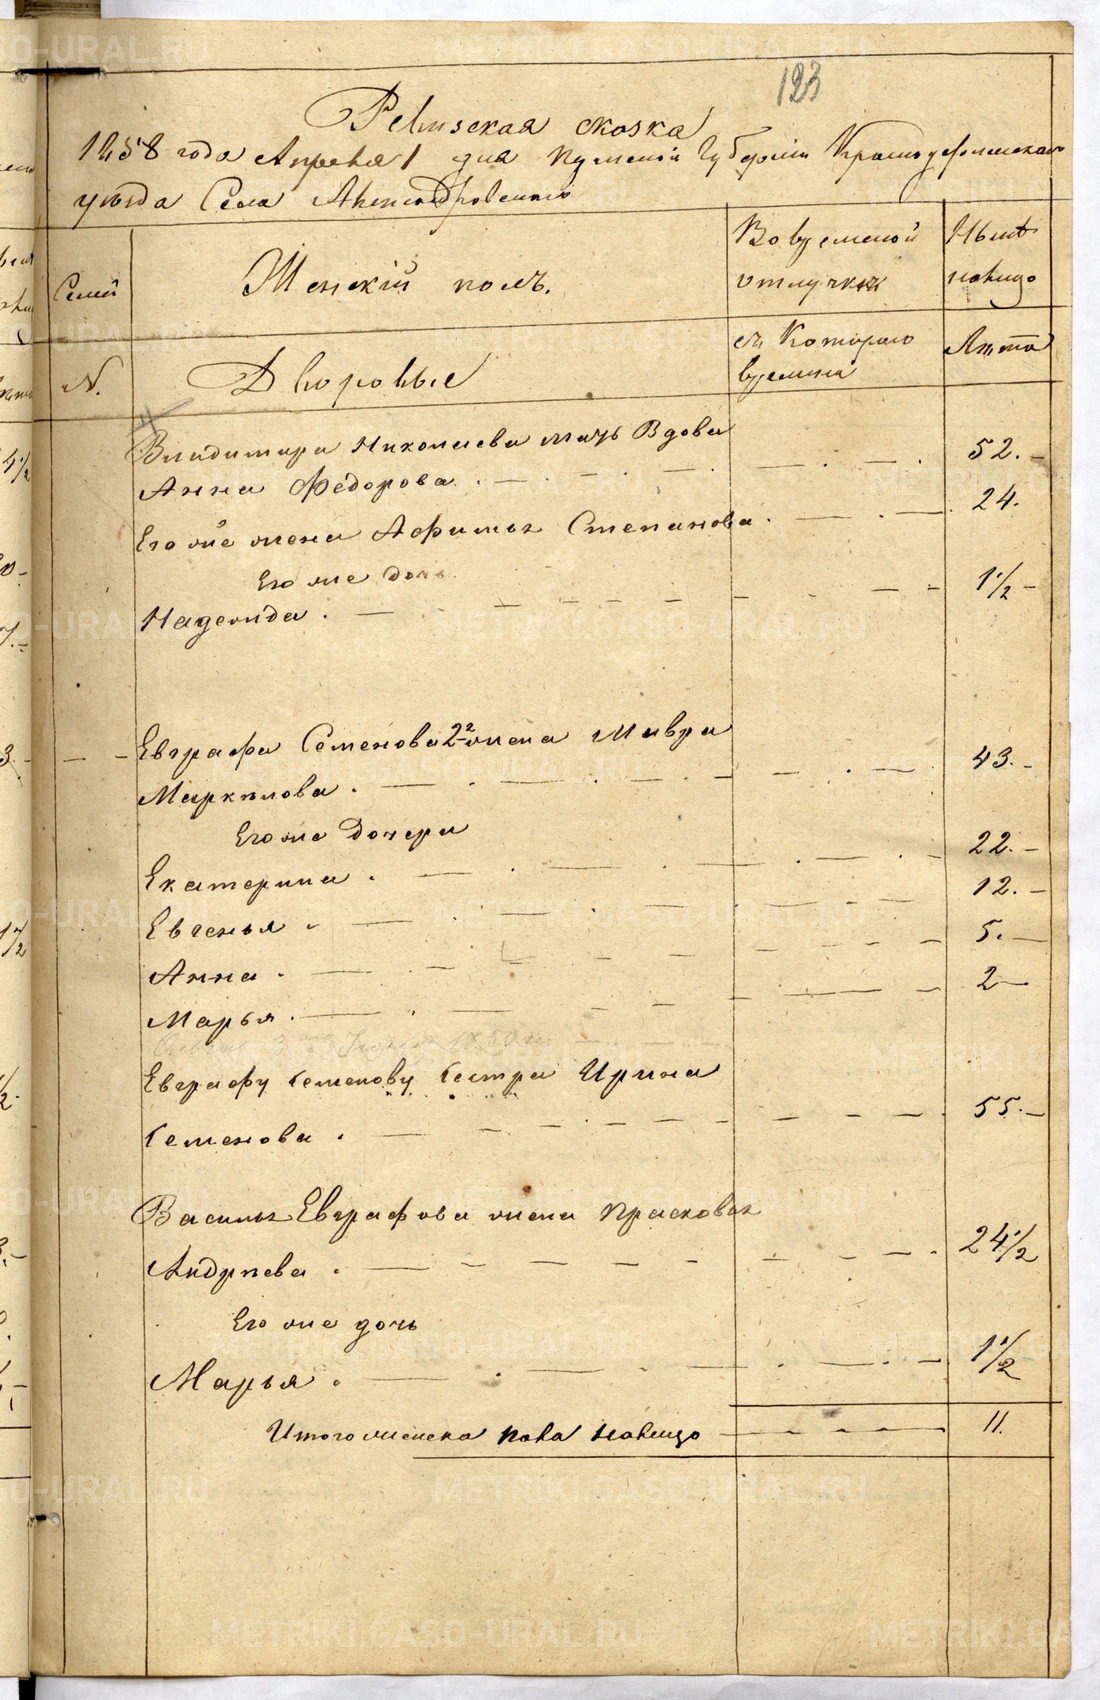 123
Ревизская скозка
1858 года Апреля 1 дня Пермской Губернiи Красноуфимскаго
уѣзда Села Александровскаго
Семей
Женскiй полъ.
Во временной
отлучкѣ
Нынѣ
налицо
N.
Дворовые
съ Котораго
времени
Лѣта
Владимира Николаева мать Вдова
Анна Федорова. 52.
Его же жена Афимья Степанова. 24.
Его же дочь
Надежида. 1 1/2
Евграфа Семенова 2я жена Мавра
Маркѣлова. 43.
Его же Дочери
Екатерина. 22.
Евгенья 12.
Анна. 5.
Марья. 2
Евграфу Семенову Сестра Ирина
Семенова. 55.
Василья Евграфова жена Прасковья
Андреева. 24 1/2
Его же дочь
Марья. 1 1/2
Итого женска пола налицо 11.
METRIKI.GASO-URAL.RU